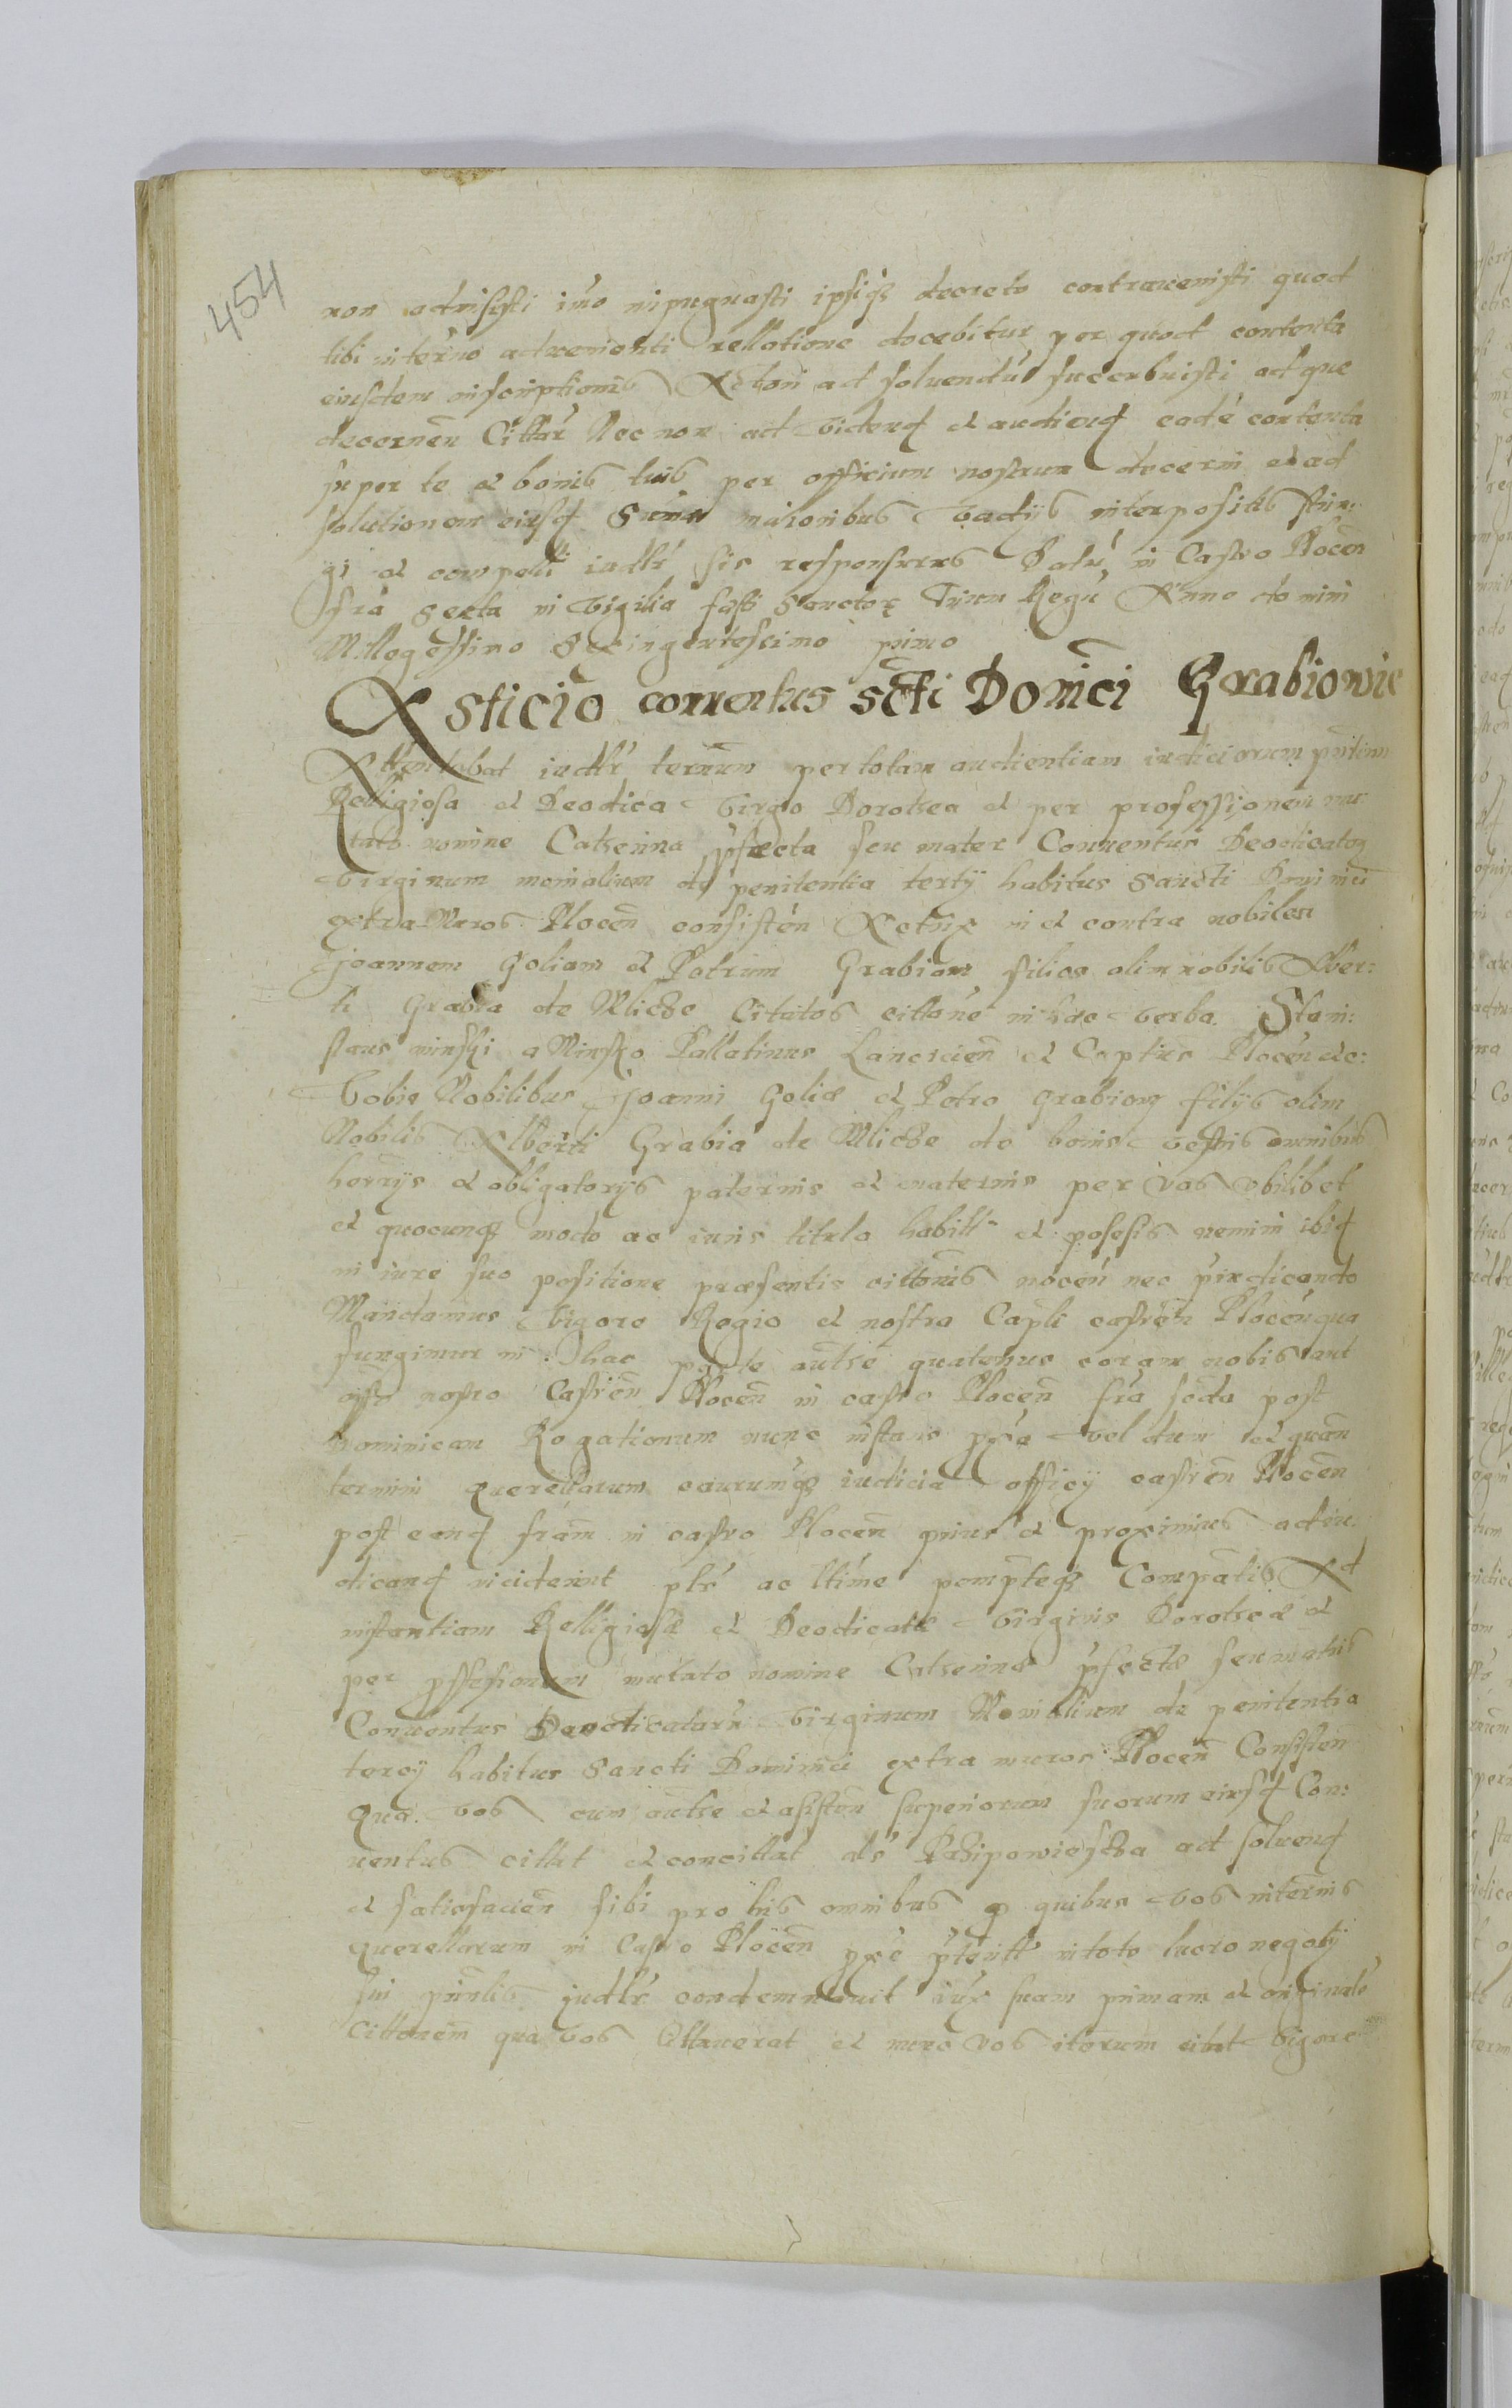 454
non admisisti imo impugnasti ipsiq decreto contravenisti quod
tibi in termino advenienti rellatione docebitur per quod contenta
eiusdem inscriptionis Actori ad solvendu succubuisti ad que
decernen Cittar Nec non ad vidend et audiend eade contenta
super te et bonis tuis per officium nostrum decerni et ad
solutionem eiusd Suma maioribus vadijs interpositis strin:
gi et compelli iudlr sis responsurus Datu in Castro Plocen
fria Sexta in vigilia festi Sanctor Trium Regu Anno domini
Millegessimo Sexingentessimo primo
Asticio conventus scti Domici Grabiowie
Attentabat iudlr terminum per totam audientiam iudiciorum pntium
Relligiosa et Deodica virgo Dorothea et per professionem mu
tato nomine Catherina pfecta seu mater Conventus Deodicator
virginum monialium de penitentia tertij habitus Sancti Dominici
extra Muros Plocen consisten Actrix in et contra nobiles
Joannem Goliam et Petrum Grabiow filios olim nobilis Alber:
ti Grabia de Mlicze Citatos cittone in hac verba. Stani:
slaus minski a Minsko Pallatinus Lancicien et Captus Plocen etc:
Vobis Nobilibus Joanni Golie et Petro Grabiow filijs olim
Nobilis Alberti Grabia de Mlicze de bonis vestris omnibus
herrijs et obligatorijs paternis et maternis per vos ubilibet
et quocunq modo ac iuris titulo habitt et posesis nemini ibid
in iure suo positione praesentis cittonis nocen nec pixdicando
Mandamus vigore Regio et nostra Capli castren Plocen qua
fungimur in hac parte authe quatenus coram nobis aut
offo nostro Castren Plocen in castro Plocen fria scda post
Dominicam Rogationum nunc instans pxe vel dum et quan
termini querellarum earumq iudicia officij castren Plocen
post eand friam in castro Plocen prius et proximius adiu
dicand inciderint plr ac lttime pompteq Compatis Ad
instantiam Relligiose et Deodicate virginis Dorothee et
per pffesionem mutato nomine Catherine pfecte seu matris
Conventus Deodicataru virginum Monialium de penitentia
tercij habitus Sancti Dominici extra muros Plocen Consisten
Qua vos cum authe et asisten superiorum suorum eiusd Con:
ventus cittat et concittat als Przipowiestka ad solvend
et satisfacien sibi pro his omnibus p quibus vos in terminis
querellarum in Castro Plocen pxe pteritt in toto lucro negotij
sui pinlis judlr condemnavit iux suam primam et originale
Cittonem qua vos Cittaverat et nunc vos iterum citat vigore